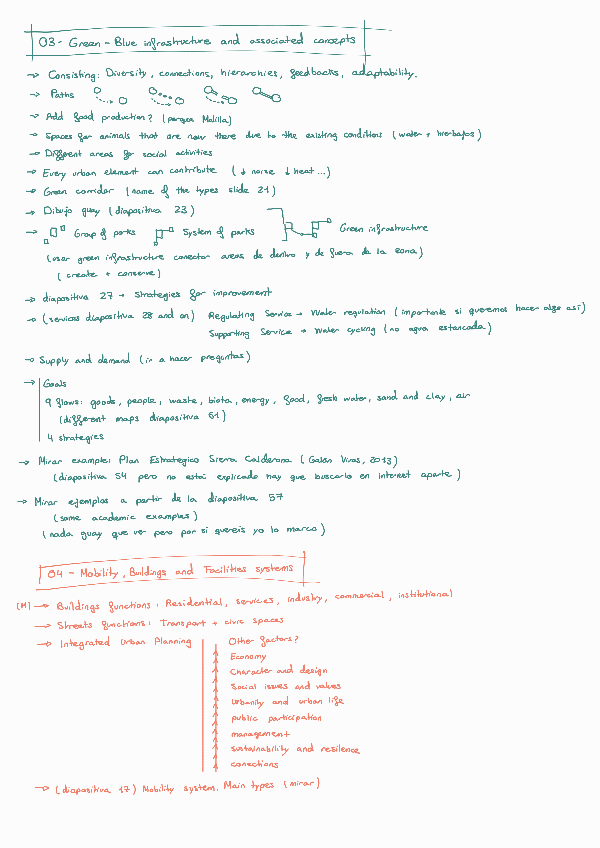 03 - Green - Blue infrastructure and associated concepts
→ Consisting: Diversity, connections, hierarchies, feedbacks, adaptability.
→ Paths
→ Add food production? (parque Malilla)
→ Spaces for animals that are now there due to the existing conditions (water + hierbajos)
→ Different areas for social activities
→ Every urban element can contribute (↓ noise ↓ heat ...)
→ Green corridor (name of the types slide 21)
→ Dibujo guay (diapositiva 23)
→ Group of parks System of parks Green infrastructure
(usar green infrastructure conector areas de dentro y de fuera de la zona)
(create + conserve)
→ diapositiva 27 → Strategies for improvement
→ (services diapositiva 28 and on) Regulating Service → Water regulation (importante si queremos hacer algo asi)
Supporting Service → Water cycling (no agua estancada)
→ Supply and demand (ir a hacer preguntas)
→ Goals
9 flows: goods, people, waste, biota, energy, food, fresh water, sand and clay, air
(different maps diapositiva 51)
4 strategies
→ Mirar example: Plan Estrategico Sierra Calderona (Galan Vivas, 2013)
(diapositiva 54 pero no está explicado hay que buscarlo en internet aparte)
→ Mirar ejemplos a partir de la diapositiva 57
(some academic examples)
(nada guay que ver pero por si quereis yo lo marco)
04 - Mobility, Buildings and Facilities systems
(M) → Buildings functions: Residential, services, industry, commercial, institutional
→ Streets functions: Transport + civic spaces
→ Integrated Urban Planning Other factors?
Economy
Character and design
Social issues and values
Urbanity and urban life
public participation
management
sustainability and resilence
conections
→ (diapositiva 17) Mobility system. Main types (mirar)